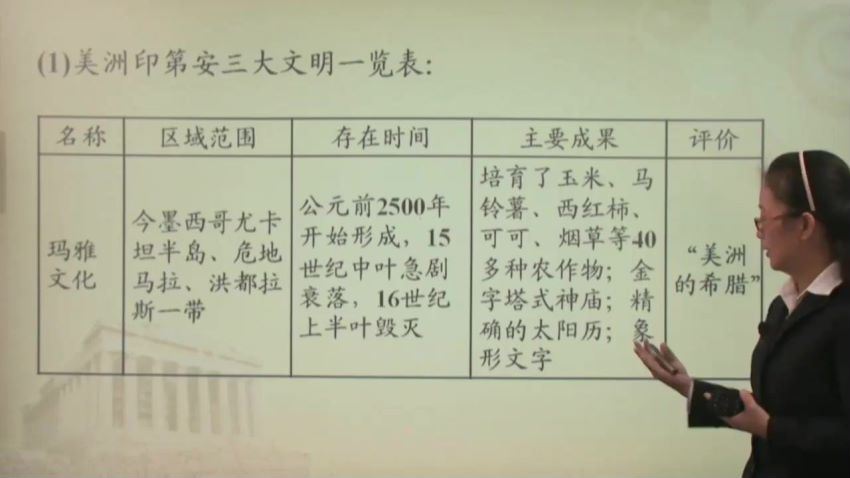 (1)美洲印第安三大文明一览表：
名称 区域范围 存在时间 主要成果 评价
玛雅
文化
今墨西哥尤卡
坦半岛、危地
马拉、洪都拉
斯一带
公元前2500年
开始形成，15
世纪中叶急剧
衰落，16世纪
上半叶毁灭
培育了玉米、马
铃薯、西红柿、
可可、烟草等40
多种农作物；金
字塔式神庙；精
确的太阳历；象
形文字
“美洲
的希腊”